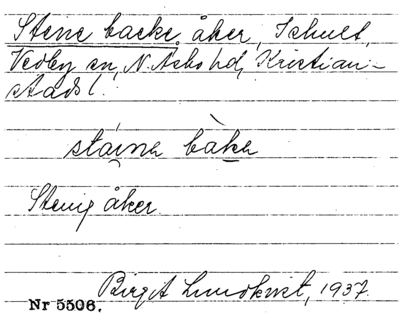 Stene backe, åker, Ishult,
Vedby sn, N. Åsbo hd, Kristian-
stads l.
stáina bàka
Stenig åker.
Birgit Lundkvist, 1937.
Nr 5506.